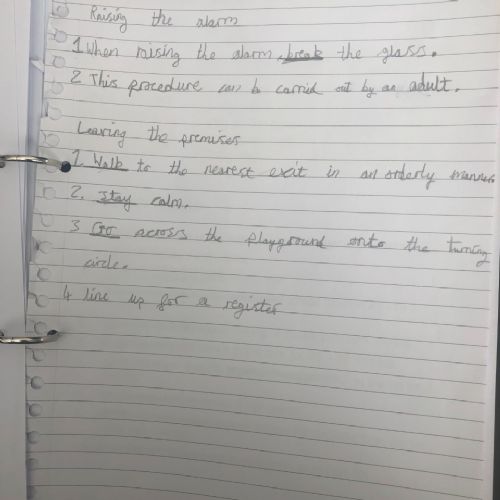 Raising the alarm
1 When raising the alarm, break the glass.
2 This procedure can be carried out by an adult.
Leaving the premises
1. Walk to the nearest exit in an orderly manner
2. Stay calm.
3 Go across the playground onto the turning
circle.
4 line up for a register